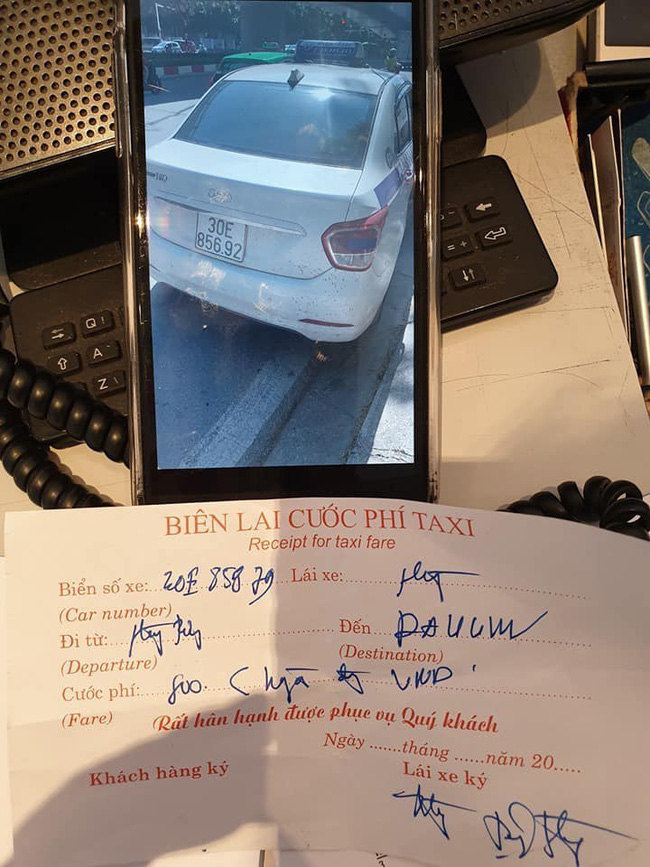 30E
856.92
Q
A
Z
BIÊN LAI CƯỚC PHÍ TAXI
Receipt for taxi fare
Biển số xe: 20E 858 79 Lái xe:
(Car number)
Đi từ: Đến
(Departure) (Destination)
Cước phí: 800. VNĐ
(Fare) Rất hân hạnh được phục vụ Quý khách
Ngày .......tháng ......năm 20.....
Khách hàng ký Lái xe ký